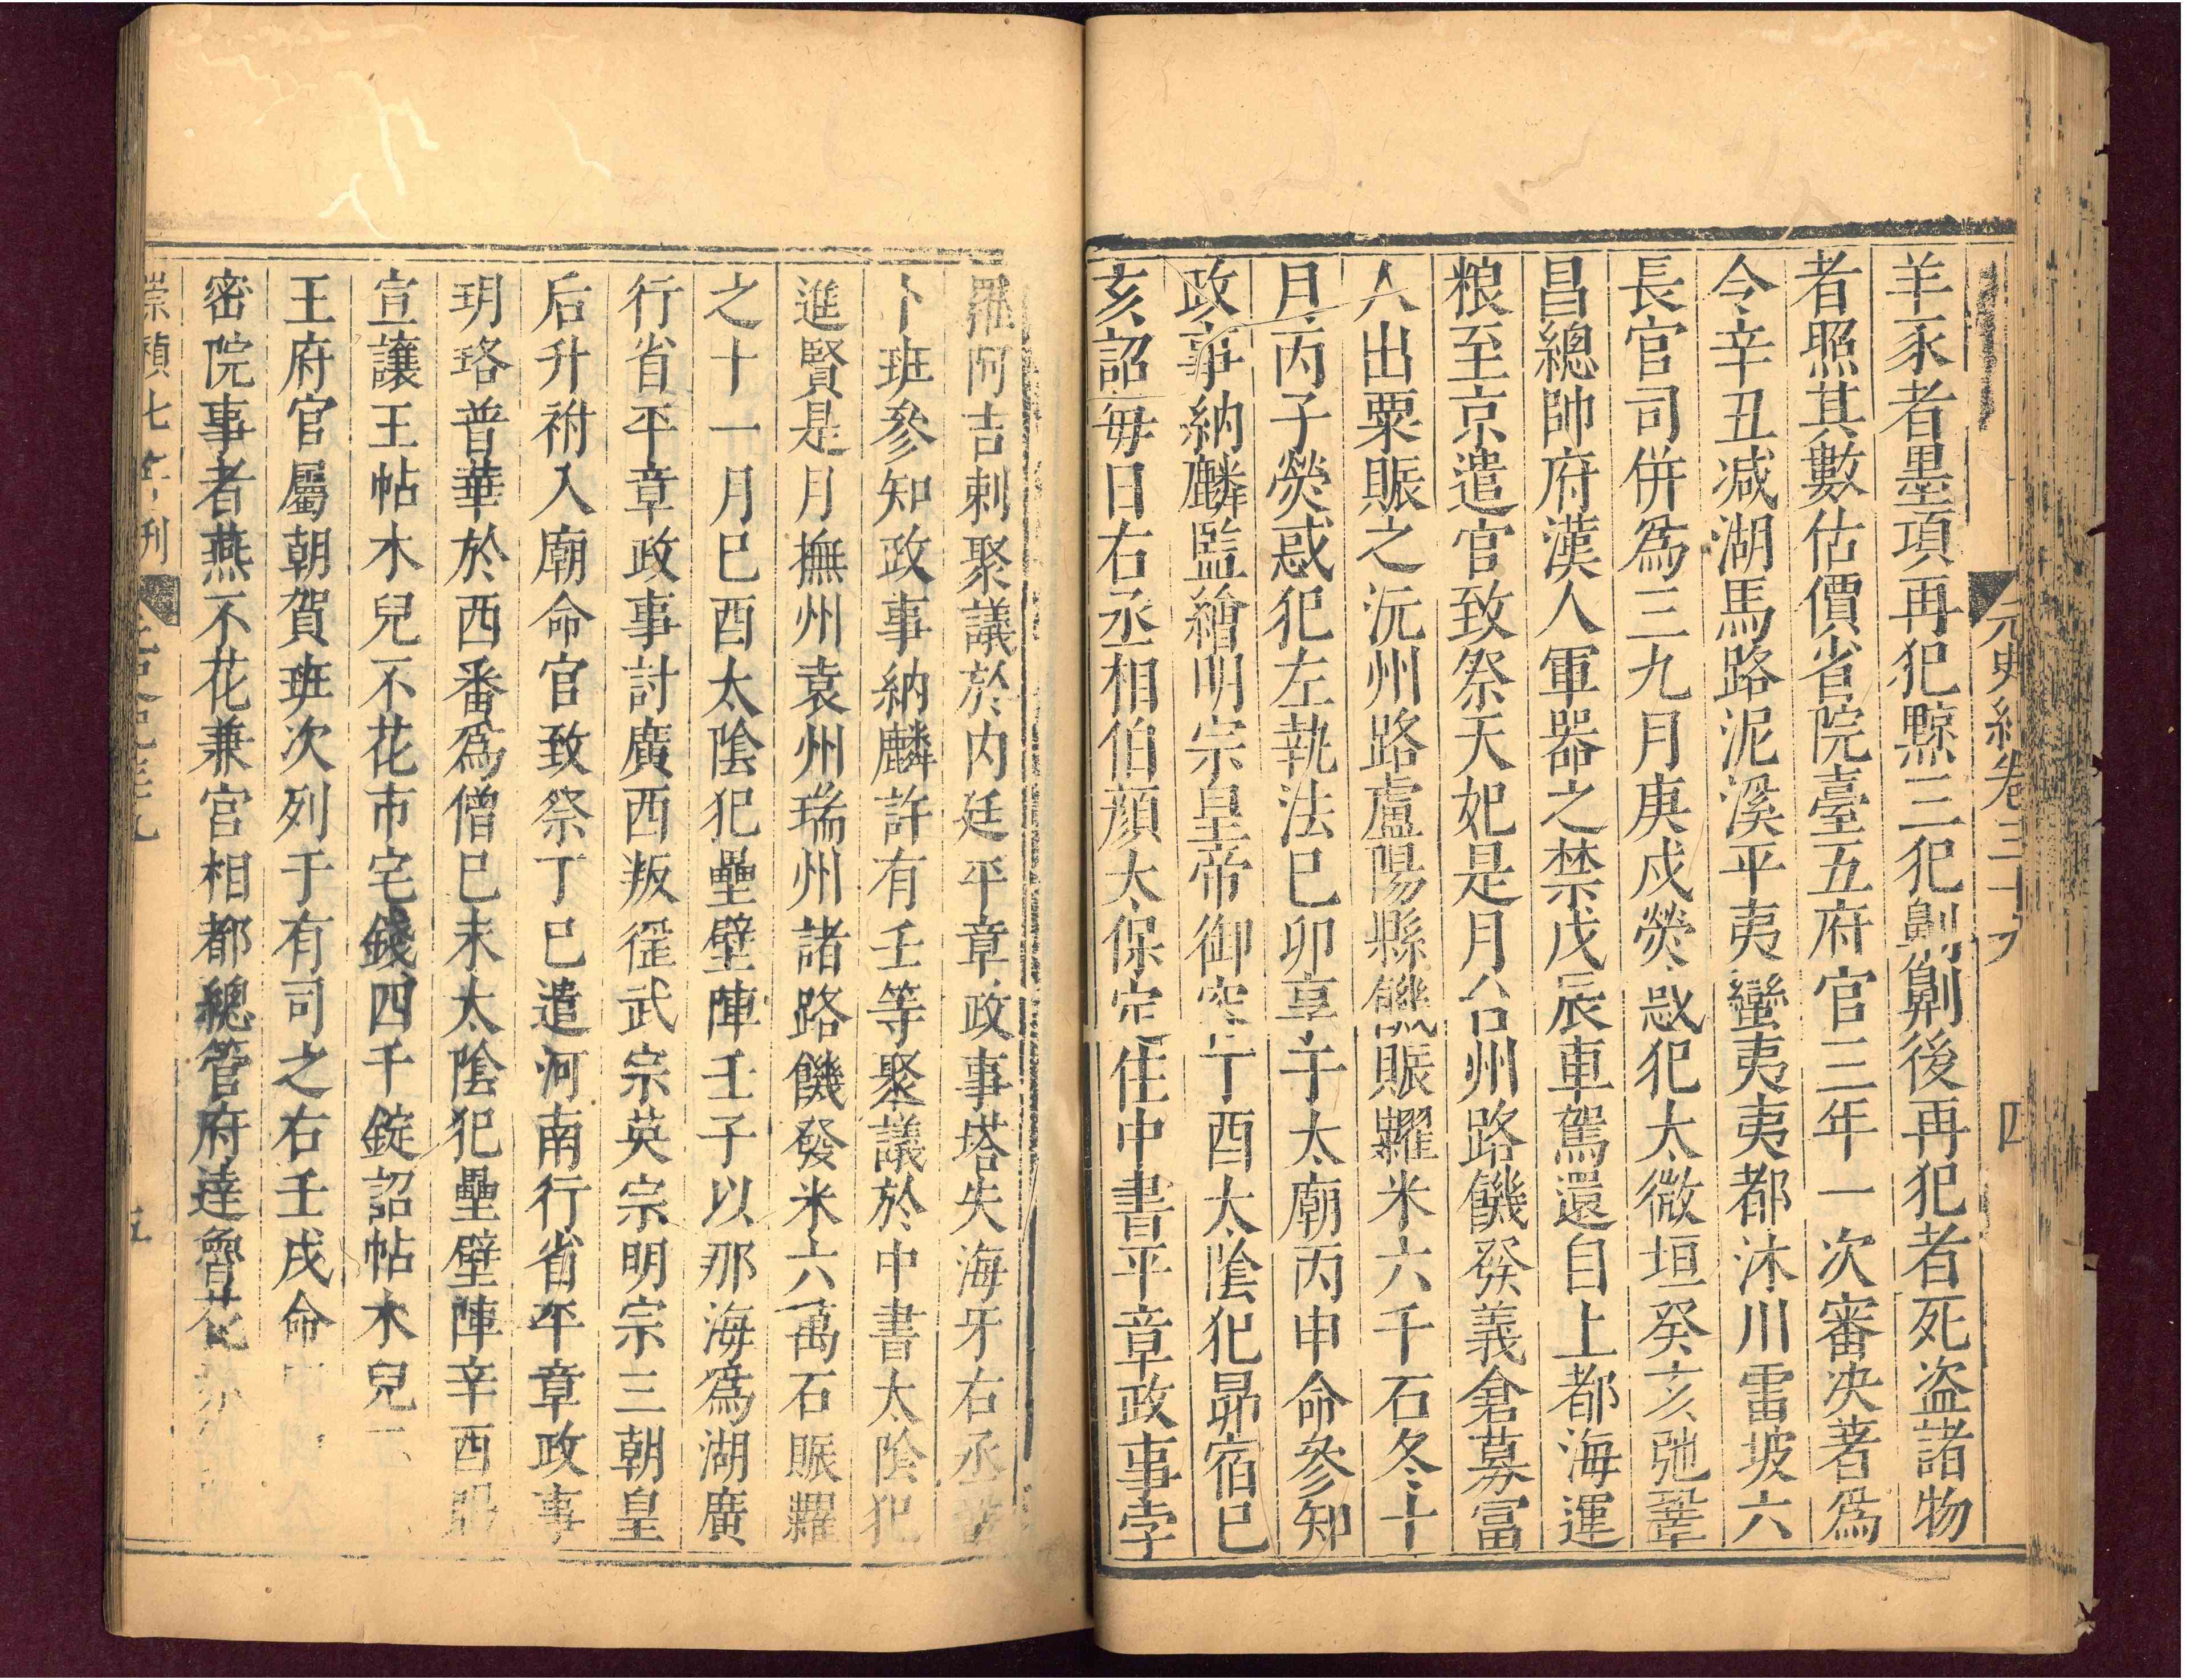 元史紀卷三十九
四
羊豕者墨項再犯黥三犯劓劓後再犯者死盜諸物
者照其數估價省院臺五府官三年一次審决著爲
令辛丑减湖馬路泥溪平夷蠻夷夷都沐川雷坡六
長官司併爲三九月庚戍熒惑犯太微垣癸亥弛鞏
昌總帥府漢人軍器之禁戊辰車駕還自上都海運
粮至京遣官致祭天妃是月台州路饑發義倉募富
人出粟賑之沅州路盧陽縣饑賑糶米六千石冬十
月丙子熒惑犯左執法巳卯享
于太廟丙申命參知
政事納麟監繪明宗皇帝御容丁酉太陰犯昴宿巳
亥詔每日右丞相伯顔太保定住中書平章政事孛
羅阿吉剌聚議於内廷平章政事塔失海牙右丞
卜班參知政事納麟許有壬等聚議於中書太陰犯
進賢是月撫州袁州瑞州諸路饑發米六萬石賑糶
之十一月巳酉太陰犯壘壁陣壬子以那海爲湖廣
行省平章政事討廣西叛徭武宗英宗明宗三朝皇
后升祔入廟命官致祭丁巳遣河南行省平章政事
玥珞普華於西番爲僧巳未太陰犯壘壁陣辛酉賜
宣讓王帖木兒不花市宅錢四千錠詔帖木兒
王府官屬朝賀班次列于有司之右壬戌命
密院事者燕不花兼宮相都總管府達魯花
崇禎七年刊
五